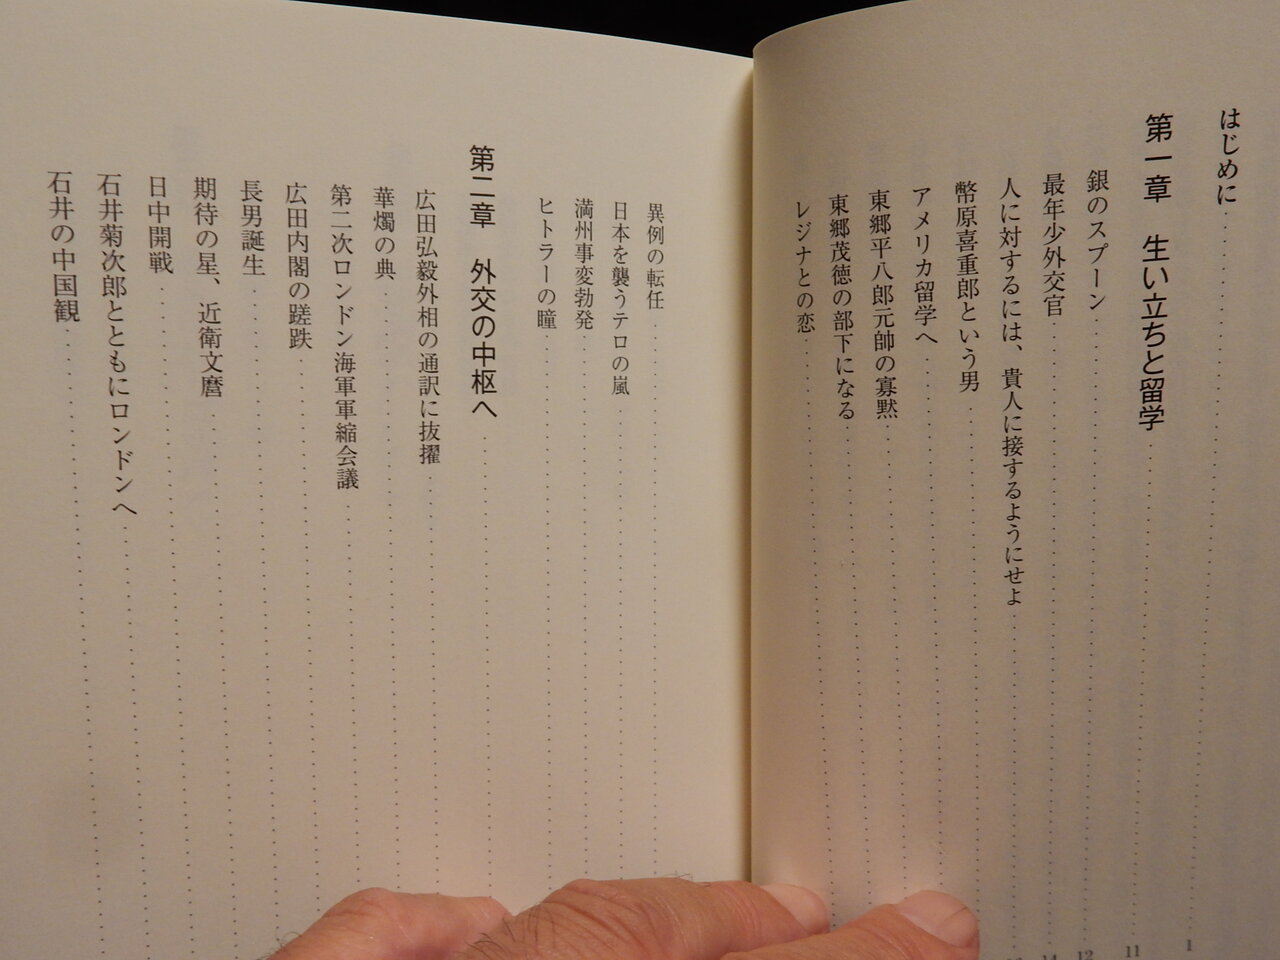 はじめに 1
第一章　生い立ちと留学 11
銀のスプーン 12
最年少外交官 14
人に対するには、貴人に接するようにせよ
幣原喜重郎という男
アメリカ留学へ
東郷平八郎元帥の寡黙
東郷茂徳の部下になる
レジナとの恋
異例の転任
日本を襲うテロの嵐
満州事変勃発
ヒトラーの瞳
第二章　外交の中枢へ
広田弘毅外相の通訳に抜擢
華燭の典
第二次ロンドン海軍軍縮会議
広田内閣の蹉跌
長男誕生
期待の星、近衛文麿
日中開戦
石井菊次郎とともにロンドンへ
石井の中国観